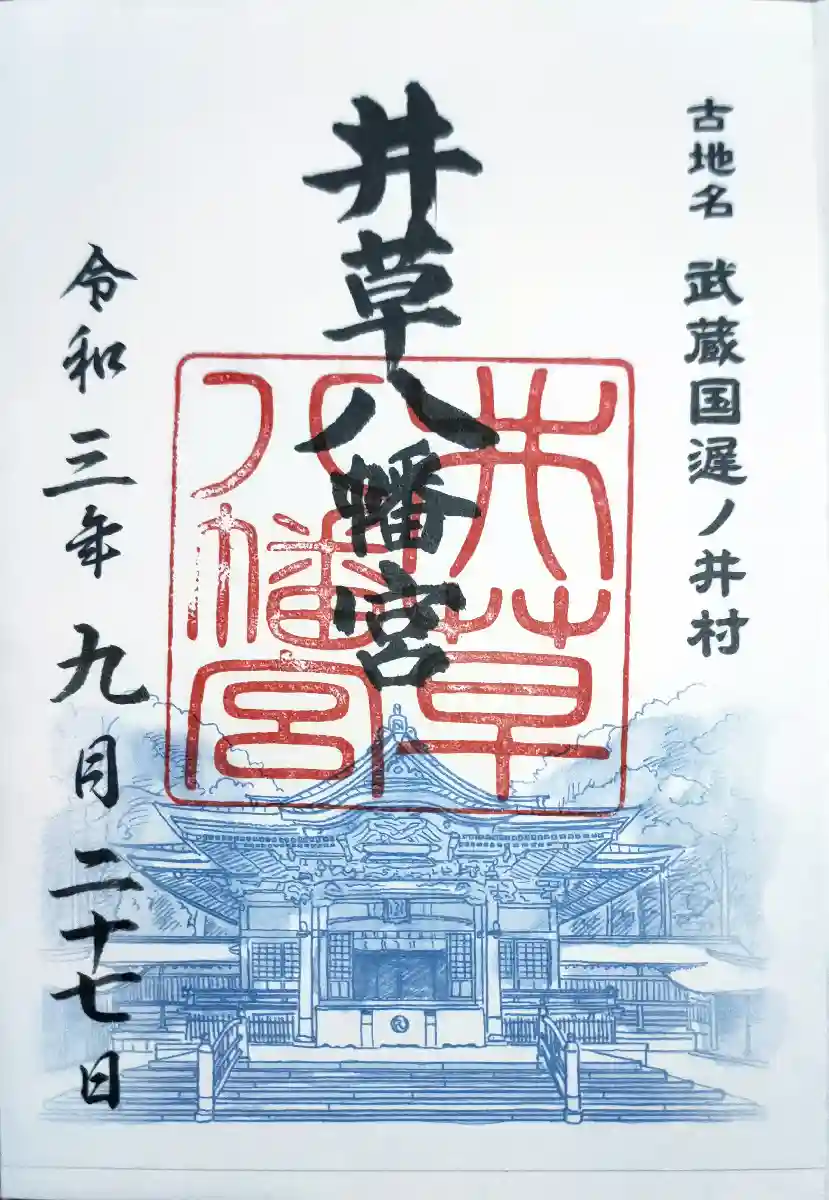 古地名 武蔵国遅ノ井村
井草八幡宮
井草
八幡宮
令和三年九月二十七日